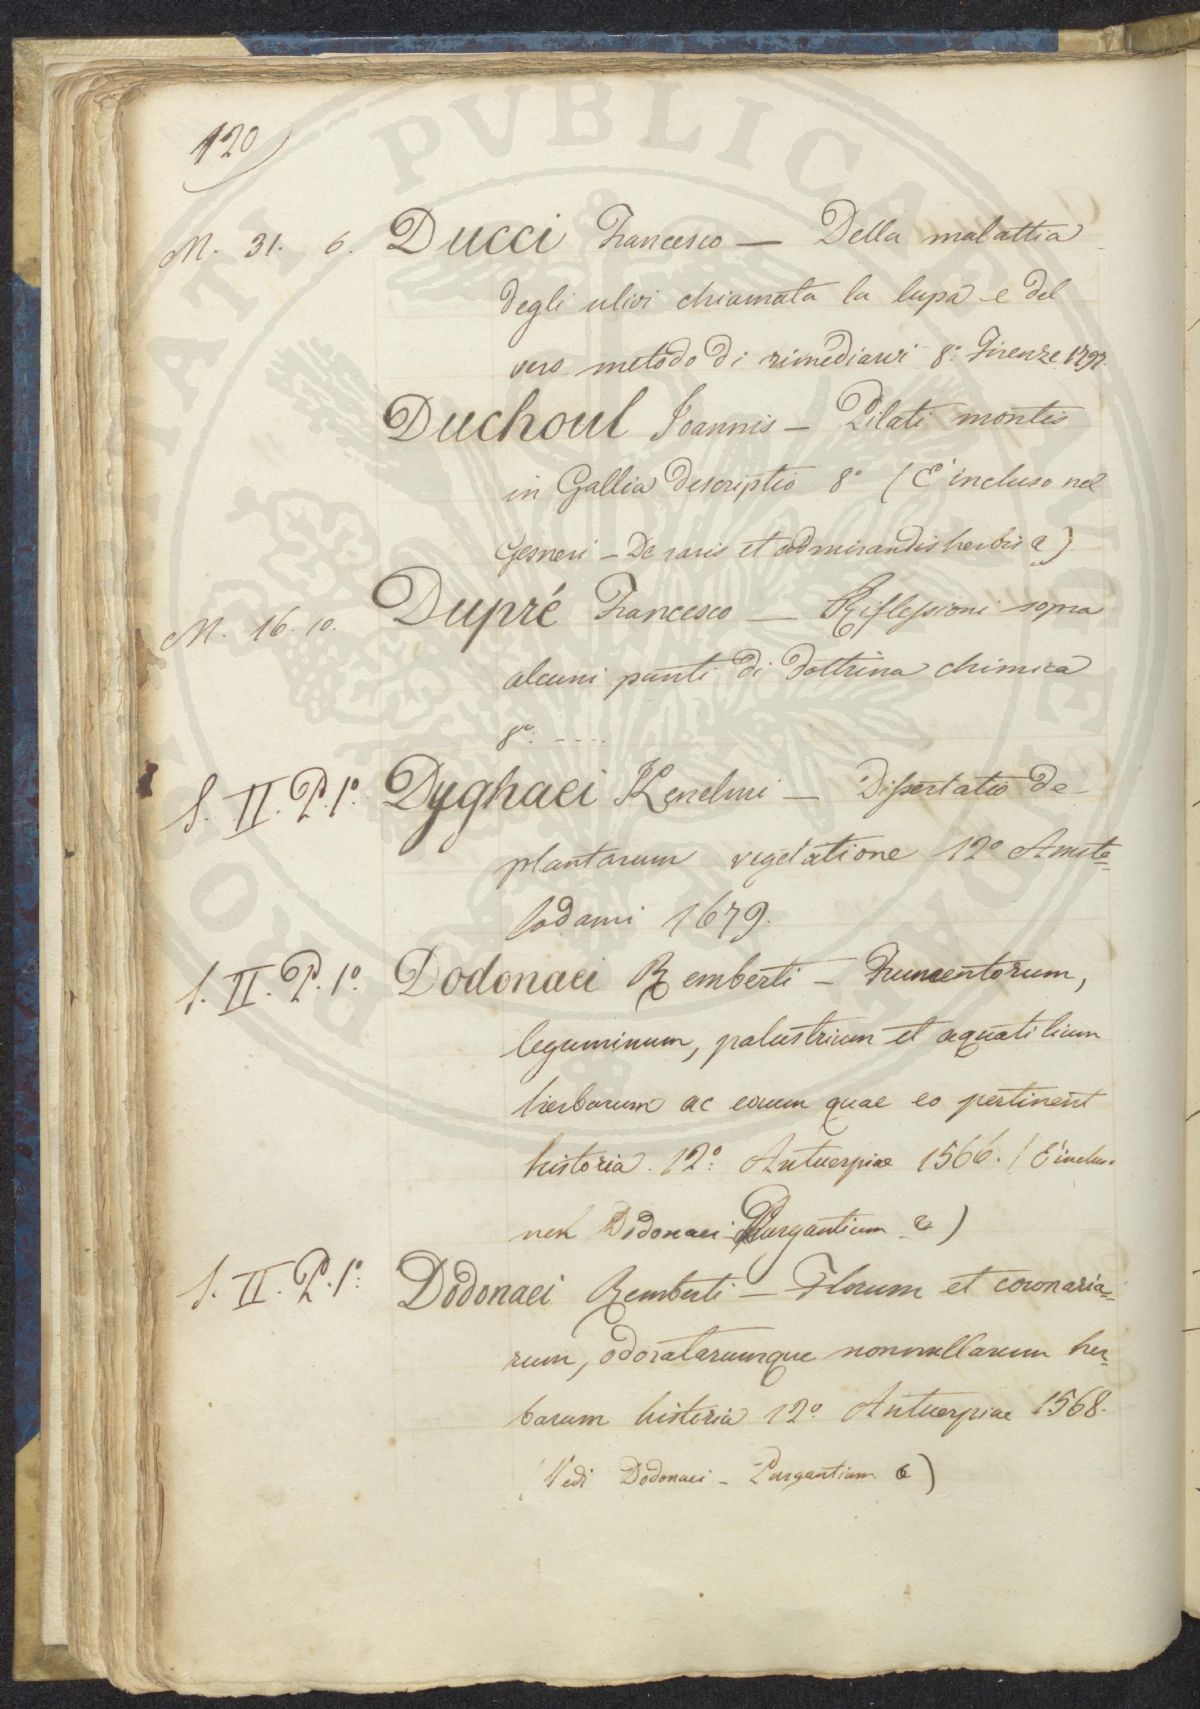 120
M. 31. 6. Ducci Francesco — Della malattia
degli ulivi chiamata la lupa e del
vero metodo di rimediarvi 8.° Firenze
Duchoul Joannis — Pilati montis
in Gallia descriptio 8° (E' incluso nel
Gesneri — De raris et admirandis herbis &)
M. 16. 10. Dupré Francesco — Riflessioni sopra
alcuni punti di dottrina chimica
8.° .....
S. II. P. 1.° Dyghaei Kenelmi — Dissertatio de
plantarum vegetatione 12° Amste=
lodami 1679.
S. II. P. 1.° Dodonaei Remberti — Frumentorum,
leguminum, palustrium et aquatilium
herbarum ac eorum quae eo pertinent
historia. 12.° Antuerpiae 1566. (E' inclus.
nel Dodonaei — Purgantium &)
S. II. P. 1.° Dodonaei Remberti — Florum et coronaria=
rum, odoratarumque nonnullarum her=
barum historia 12.° Antuerpiae 1568.
(Vedi Dodonaei — Purgantium &)